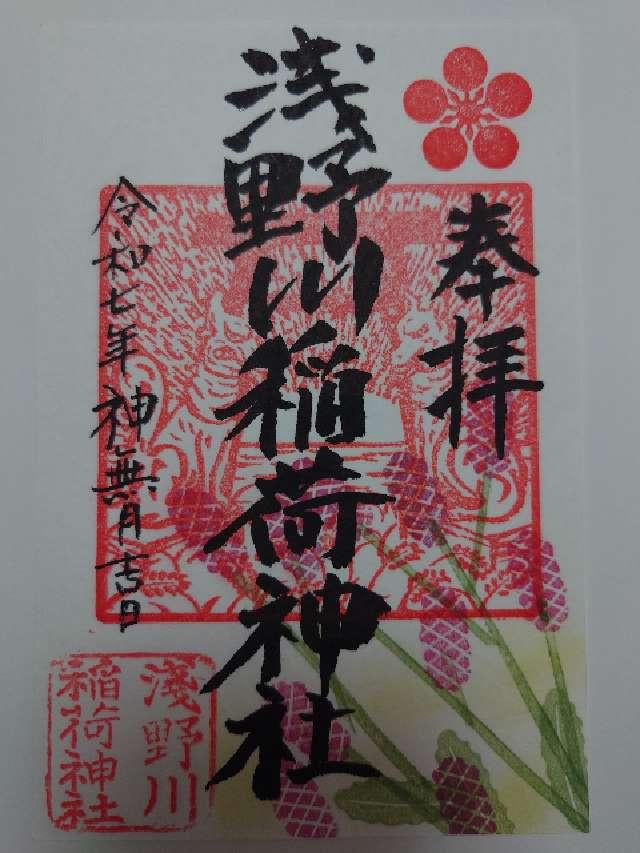 奉拝
浅野川稲荷神社
令和七年神無月吉日
淺野川
稲荷神社